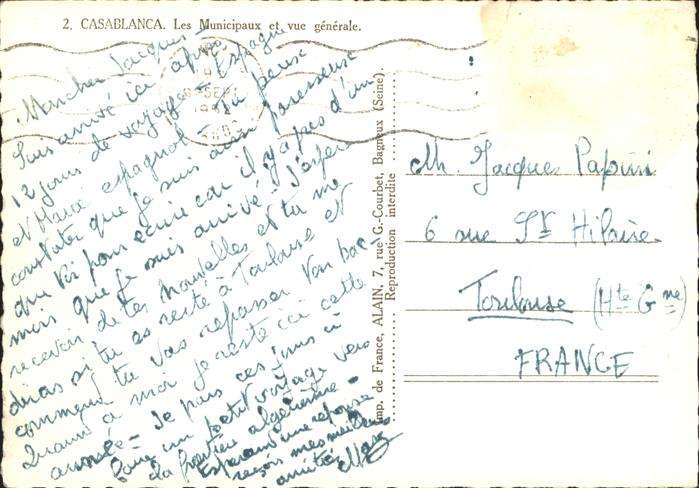 2. CASABLANCA. Les Municipaux et vue générale.
Mon cher Jacques
Suis arrivé ici après
12 jours de voyage = Espagne
et Maroc espagnol - Tu peux
constater que je suis aussi paresseuse
que toi pour écrire car il y a près d'un
mois que je suis arrivé. J'espère
recevoir de tes nouvelles et tu me
diras si tu es resté à Toulouse et
comment tu vas repasser ton bac
Quant à moi je reste ici cette
année = Je pars ces jours-ci
faire un petit voyage vers
la frontière algérienne -
Espérant une réponse
reçois mes meilleures
amitiés
Imp. de France, ALAIN, 7, rue G.-Courbet, Bagneux (Seine).
Reproduction interdite
M. Jacques Papini
6 rue St Hilaire
Toulouse (Hte Gne)
FRANCE